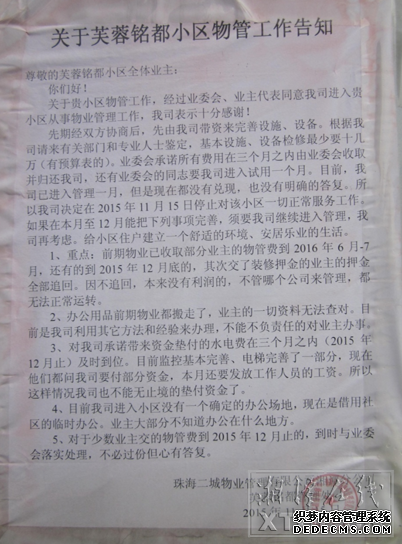 关于芙蓉铭都小区物管工作告知
尊敬的芙蓉铭都小区全体业主：
你们好！
关于贵小区物管工作，经过业委会、业主代表同意我司进入贵
小区从事物业管理工作，我司表示十分感谢！
先期经双方协商后，先由我司带资来完善设施、设备。根据我
司请来有关部门和专业人士鉴定，基本设施、设备检修最少要十几
万（有预算表的）。业委会承诺所有费用在三个月之内由业委会收取
并归还我司，还有业委会的同志要我司进入试用一个月。目前，我
司已进入管理一月，但是现在都没有兑现，也没有明确的答复。所
以我司决定在 2015 年 11 月 15 日停止对该小区一切正常服务工作。
如果在本月至 12 月能把下列事项完善，须要我司继续进入管理，我
司再考虑。给小区住户建立一个舒适的环境、安居乐业的生活。
1、重点：前期物业已收取部分业主的物管费到 2016 年 6 月-7
月，还有的到 2015 年 12 月底的，其次交了装修押金的业主的押金
全部追回。因不追回，本来没有利润的，不管哪个公司来管理，都
无法正常运转。
2、办公用品前期物业都搬走了，业主的一切资料无法查对。目
前是我司利用其它方法和经验来办理，不能不负责任的对业主办事。
3、对我司承诺带来资金垫付的水电费在三个月之内（2015 年
12 月止）及时到位。目前监控基本完善、电梯完善了一部分，现在
他们都问我司要付部分资金，本月还要发放工作人员的工资。所以
这样情况我司也不能无止境的垫付资金了。
4、目前我司进入小区没有一个确定的办公场地，现在是借用社
区的临时办公。业主大部分不知道办公在什么地方。
5、对于少数业主交的物管费到 2015 年 12 月止的，到时与业委
会落实处理，不必过份但心有答复。
珠海二城物业管
芙蓉铭都
2015 年 11